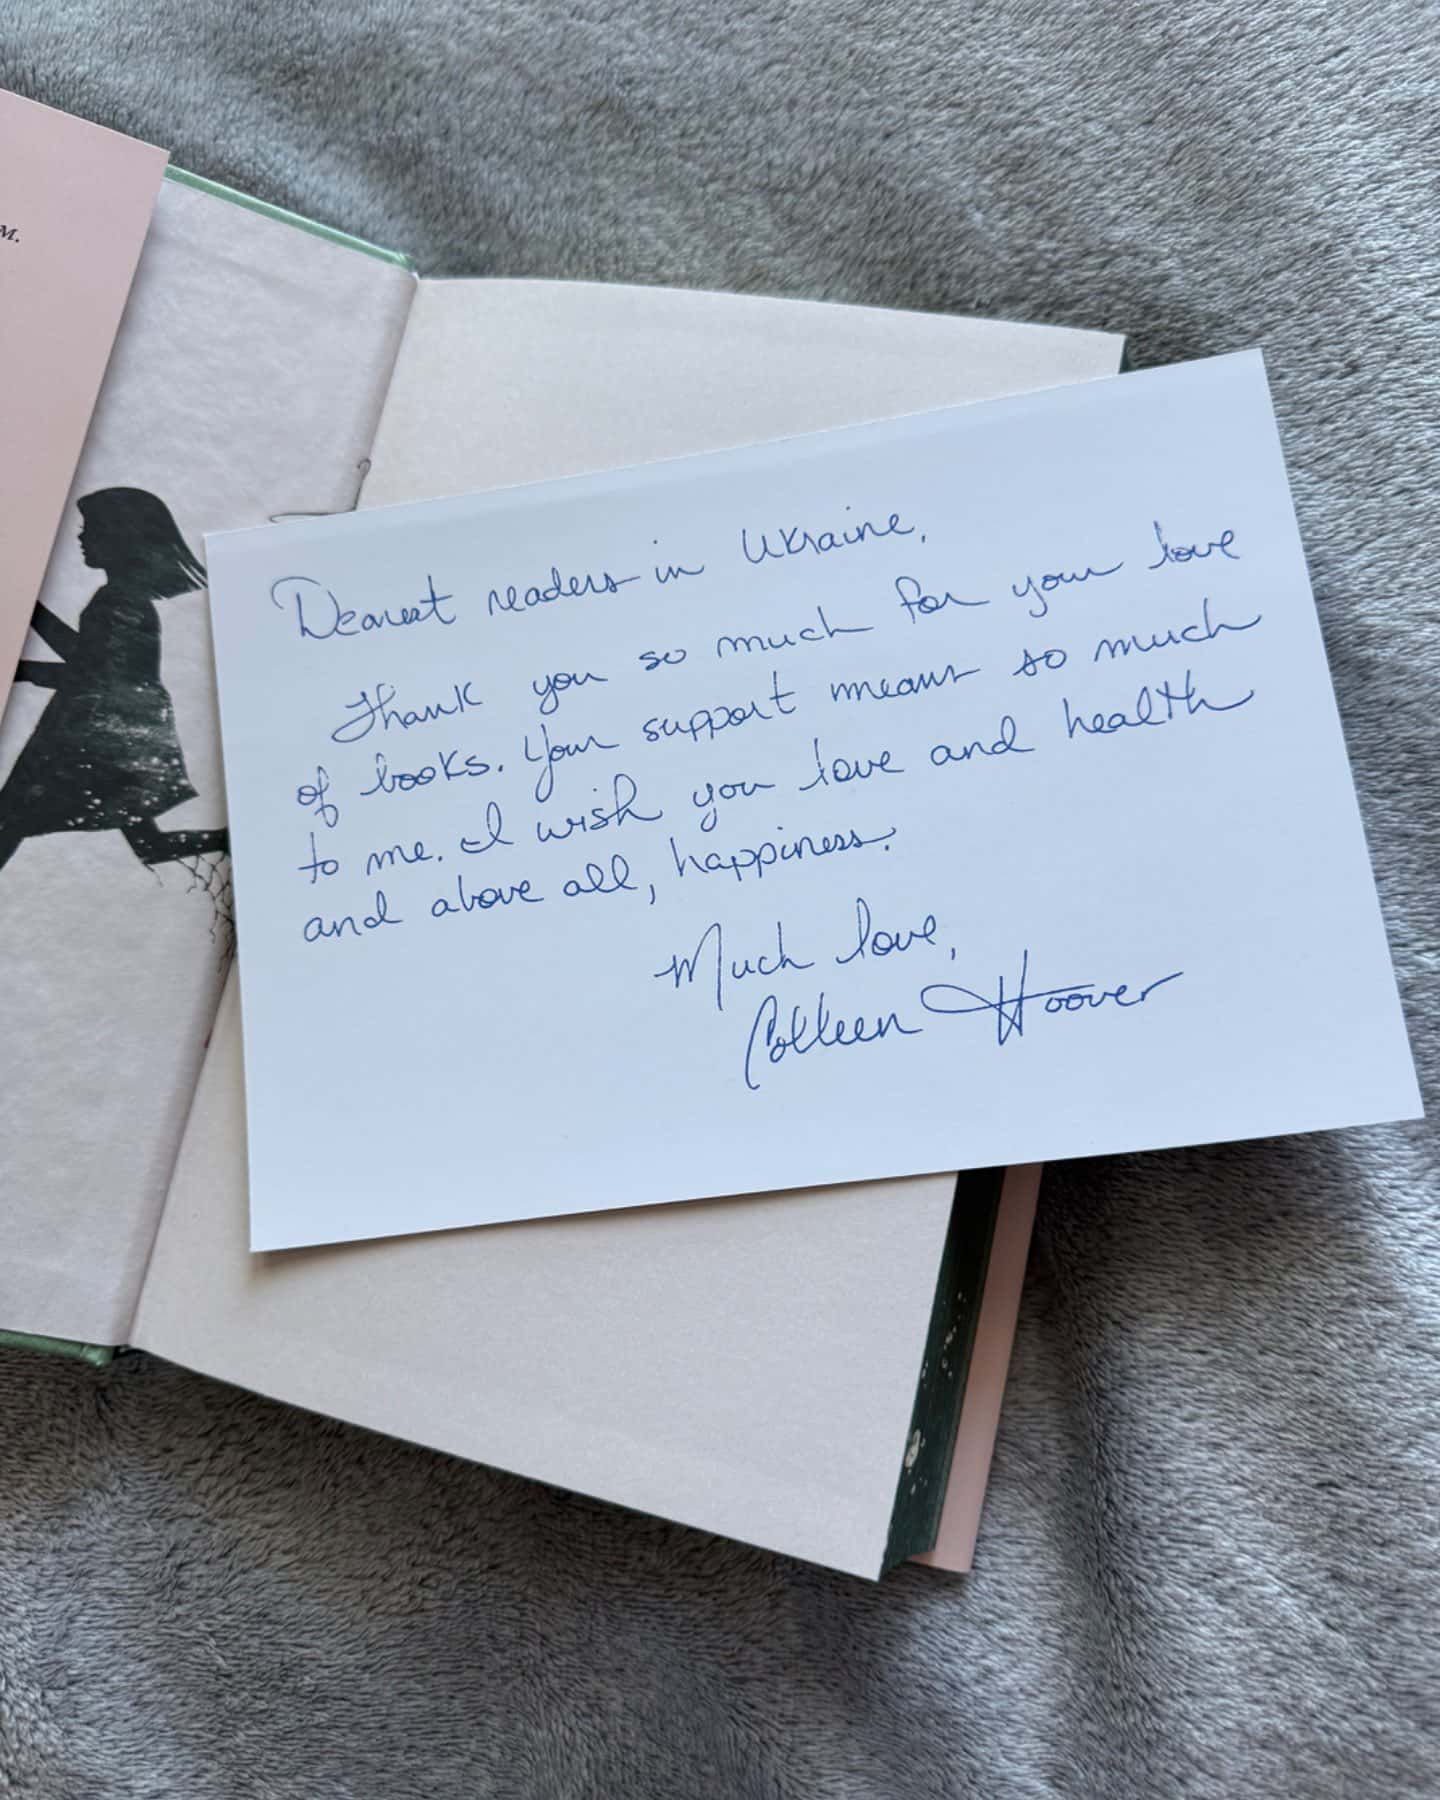 м.
Dearest readers in Ukraine,
Thank you so much for your love
of books. Your support means so much
to me. I wish you love and health
and above all, happiness.
Much love,
Colleen Hoover